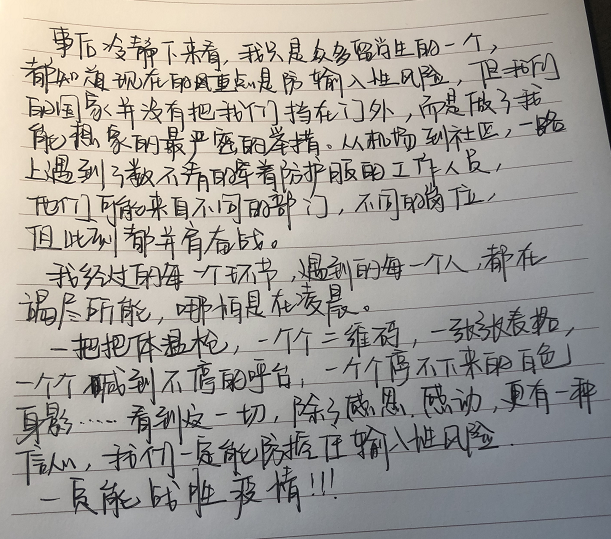 事后冷静下来看，我只是众多留学生的一个，
都知道现在的风重点是防输入性风险，但我们
的国家并没有把我们挡在门外，而是做了我
能想象的最严密的举措。从机场到社区，一路
上遇到了数不清的穿着防护服的工作人员，
他们可能来自不同的部门，不同的岗位，
但此刻都并肩奋战。
我经过的每一个环节，遇到的每一个人，都在
竭尽所能，哪怕是在凌晨。
一把把体温枪，一个个二维码，一张张表格，
一个个喊到不停的呼台，一个个停不下来的白色
身影……看到这一切，除了感恩、感动，更有一种
信心，我们一定能防控住输入性风险.
一定能战胜疫情!!!